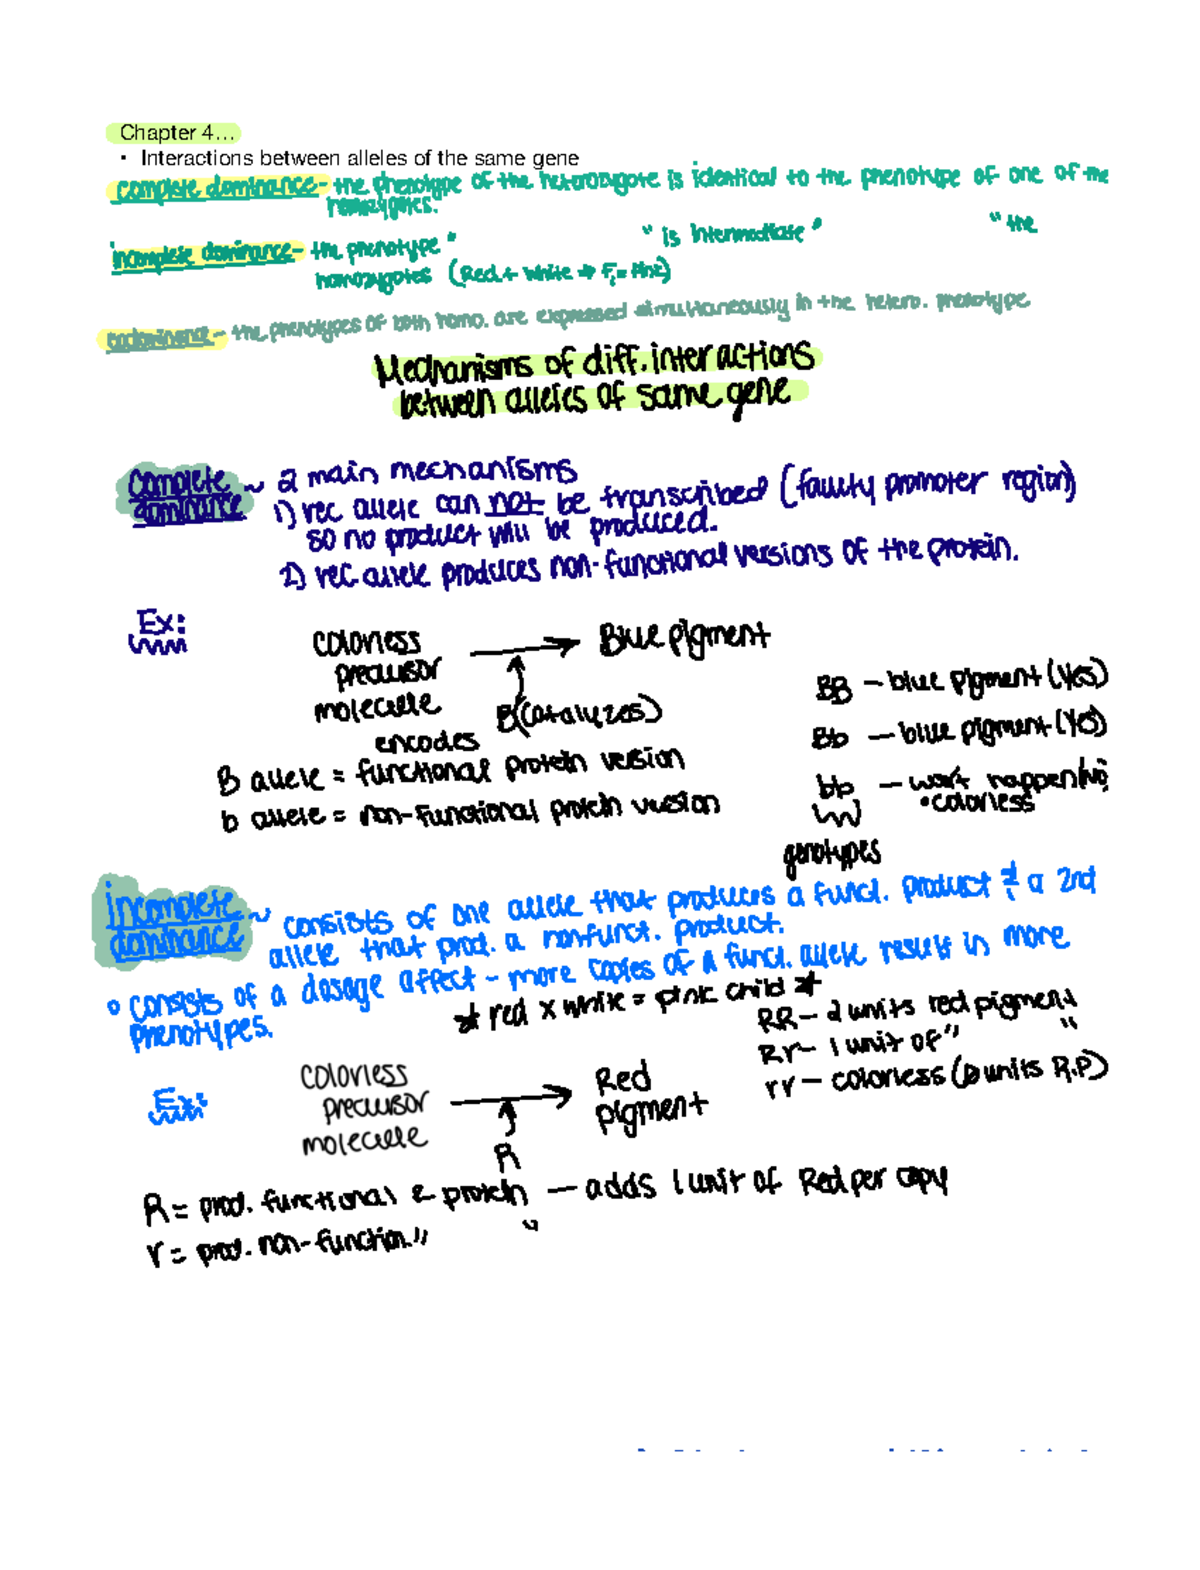 Chapter 4...
▪ Interactions between alleles of the same gene
complete dominance- the phenotype of the heterozygote is identical to the phenotype of one of the
homozygotes.
incomplete dominance- the phenotype " " is intermediate " " the
homozygotes (Red + white → F₁ = Pink)
codominance- the phenotypes of both homo. are expressed simultaneously in the hetero. phenotype
Mechanisms of diff. interactions
between alleles of same gene
complete dominance ~ 2 main mechanisms
1) rec allele can not be transcribed (faulty promoter region)
so no product will be produced.
2) rec allele produces non-functional versions of the protein.
Ex:
colorless precursor molecule → Blue pigment
B (catalyzes)
encodes
B allele = functional protein version
b allele = non-functional protein version
BB — blue pigment (Yes)
Bb — blue pigment (Yes)
bb — won't happen (No)
• colorless
genotypes
Incomplete dominance ~ consists of one allele that produces a funct. product & a 2nd
allele that prod. a nonfunct. product.
° consists of a dosage affect - more copies of a funct. allele result in more
phenotypes.
* red x white = pink child *
RR — 2 units red pigment
Rr — 1 unit of " "
rr — colorless (0 units R.P)
Ex:
colorless precursor molecule → Red pigment
R
R = prod. functional protein — adds 1 unit of Red per copy
r = prod. non-function. " "